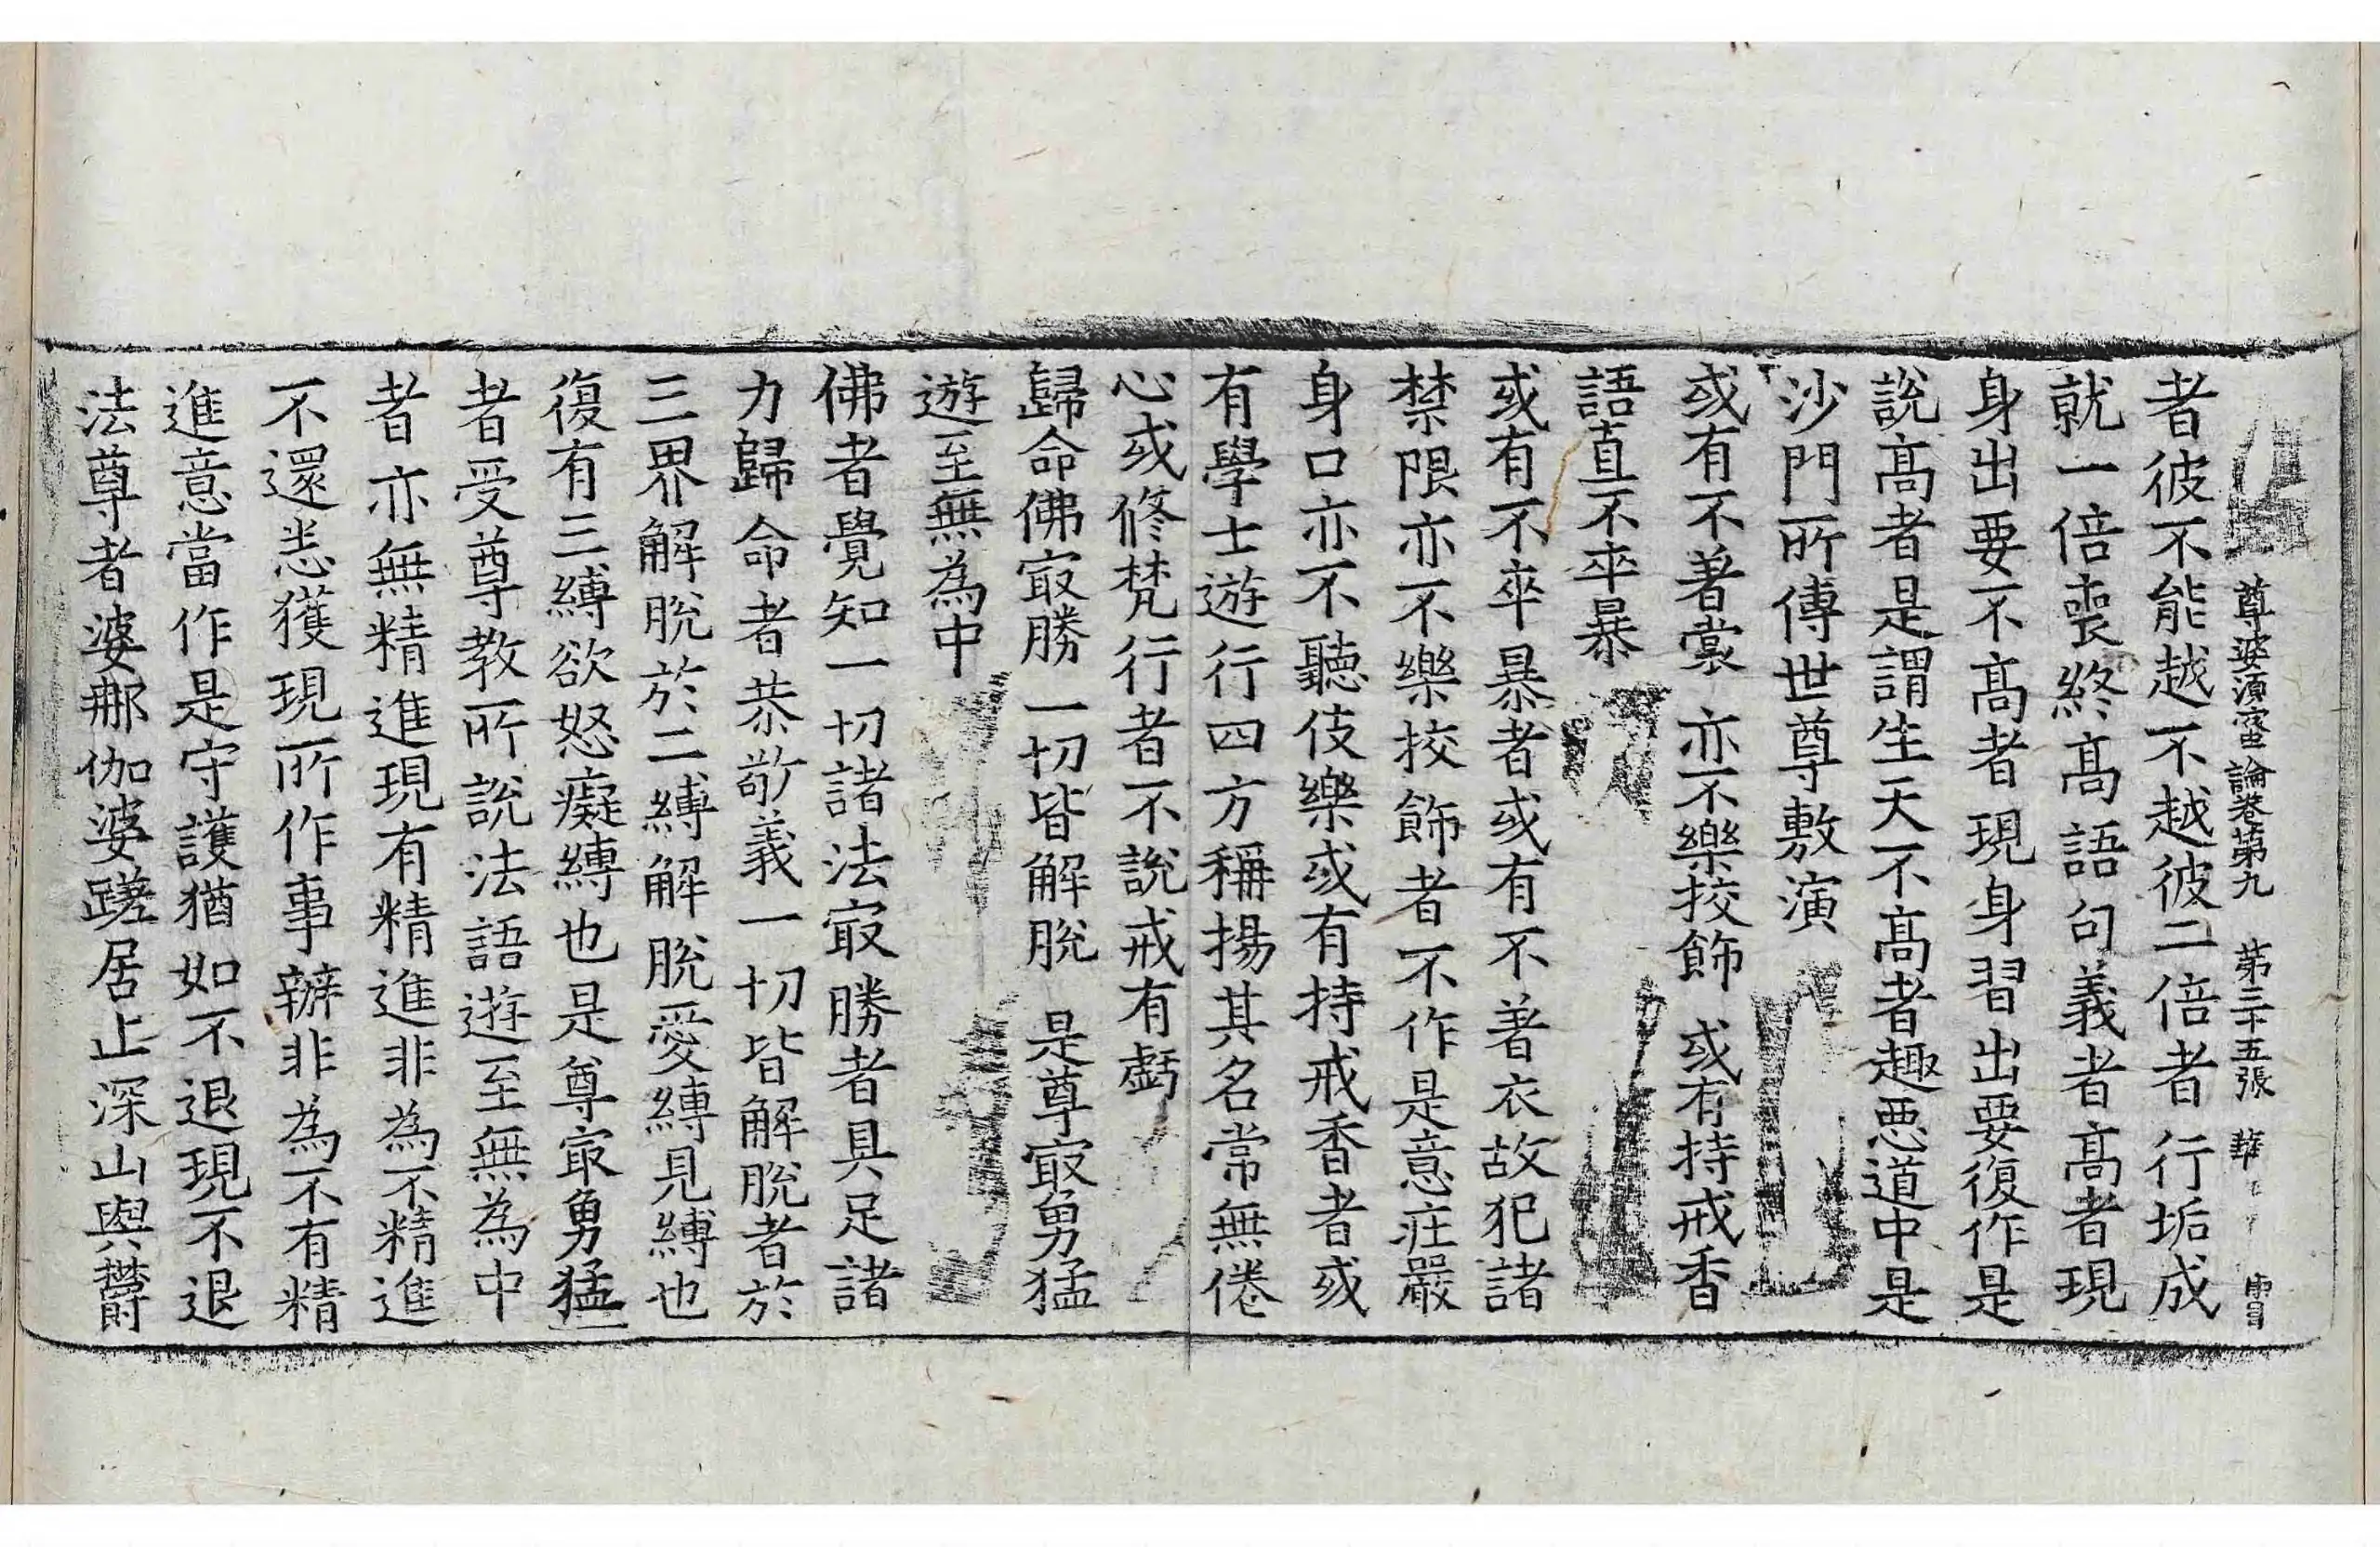 尊婆須蜜論卷第九 第三十五張 華
者彼不能越不越彼二倍者行垢成
就一倍喪終高語句義者高者現
身出要不高者現身習出要復作是
說高者是謂生天不高者趣惡道中是
沙門所傳世尊敷演
或有不著裳 亦不樂挍飾 或有持戒香
語直不卒暴
或有不卒暴者或有不著衣故犯諸
禁限亦不樂挍飾者不作是意莊嚴
身口亦不聽伎樂或有持戒香者或
有學士遊行四方稱揚其名常無倦
心或修梵行者不說戒有虧
歸命佛㝡勝 一切皆解脫 是尊㝡勇猛
遊至無為中
佛者覺知一切諸法㝡勝者具足諸
力歸命者恭敬義一切皆解脫者於
三界解脫於二縛解脫愛縛見縛也
復有三縛欲怒癡縛也是尊㝡勇猛
者受尊教所說法語遊至無為中
者亦無精進現有精進非為不精進
不還恙獲現所作事辦非為不有精
進意當作是守護猶如不退現不退
法尊者婆那伽婆蹉居止深山與欝